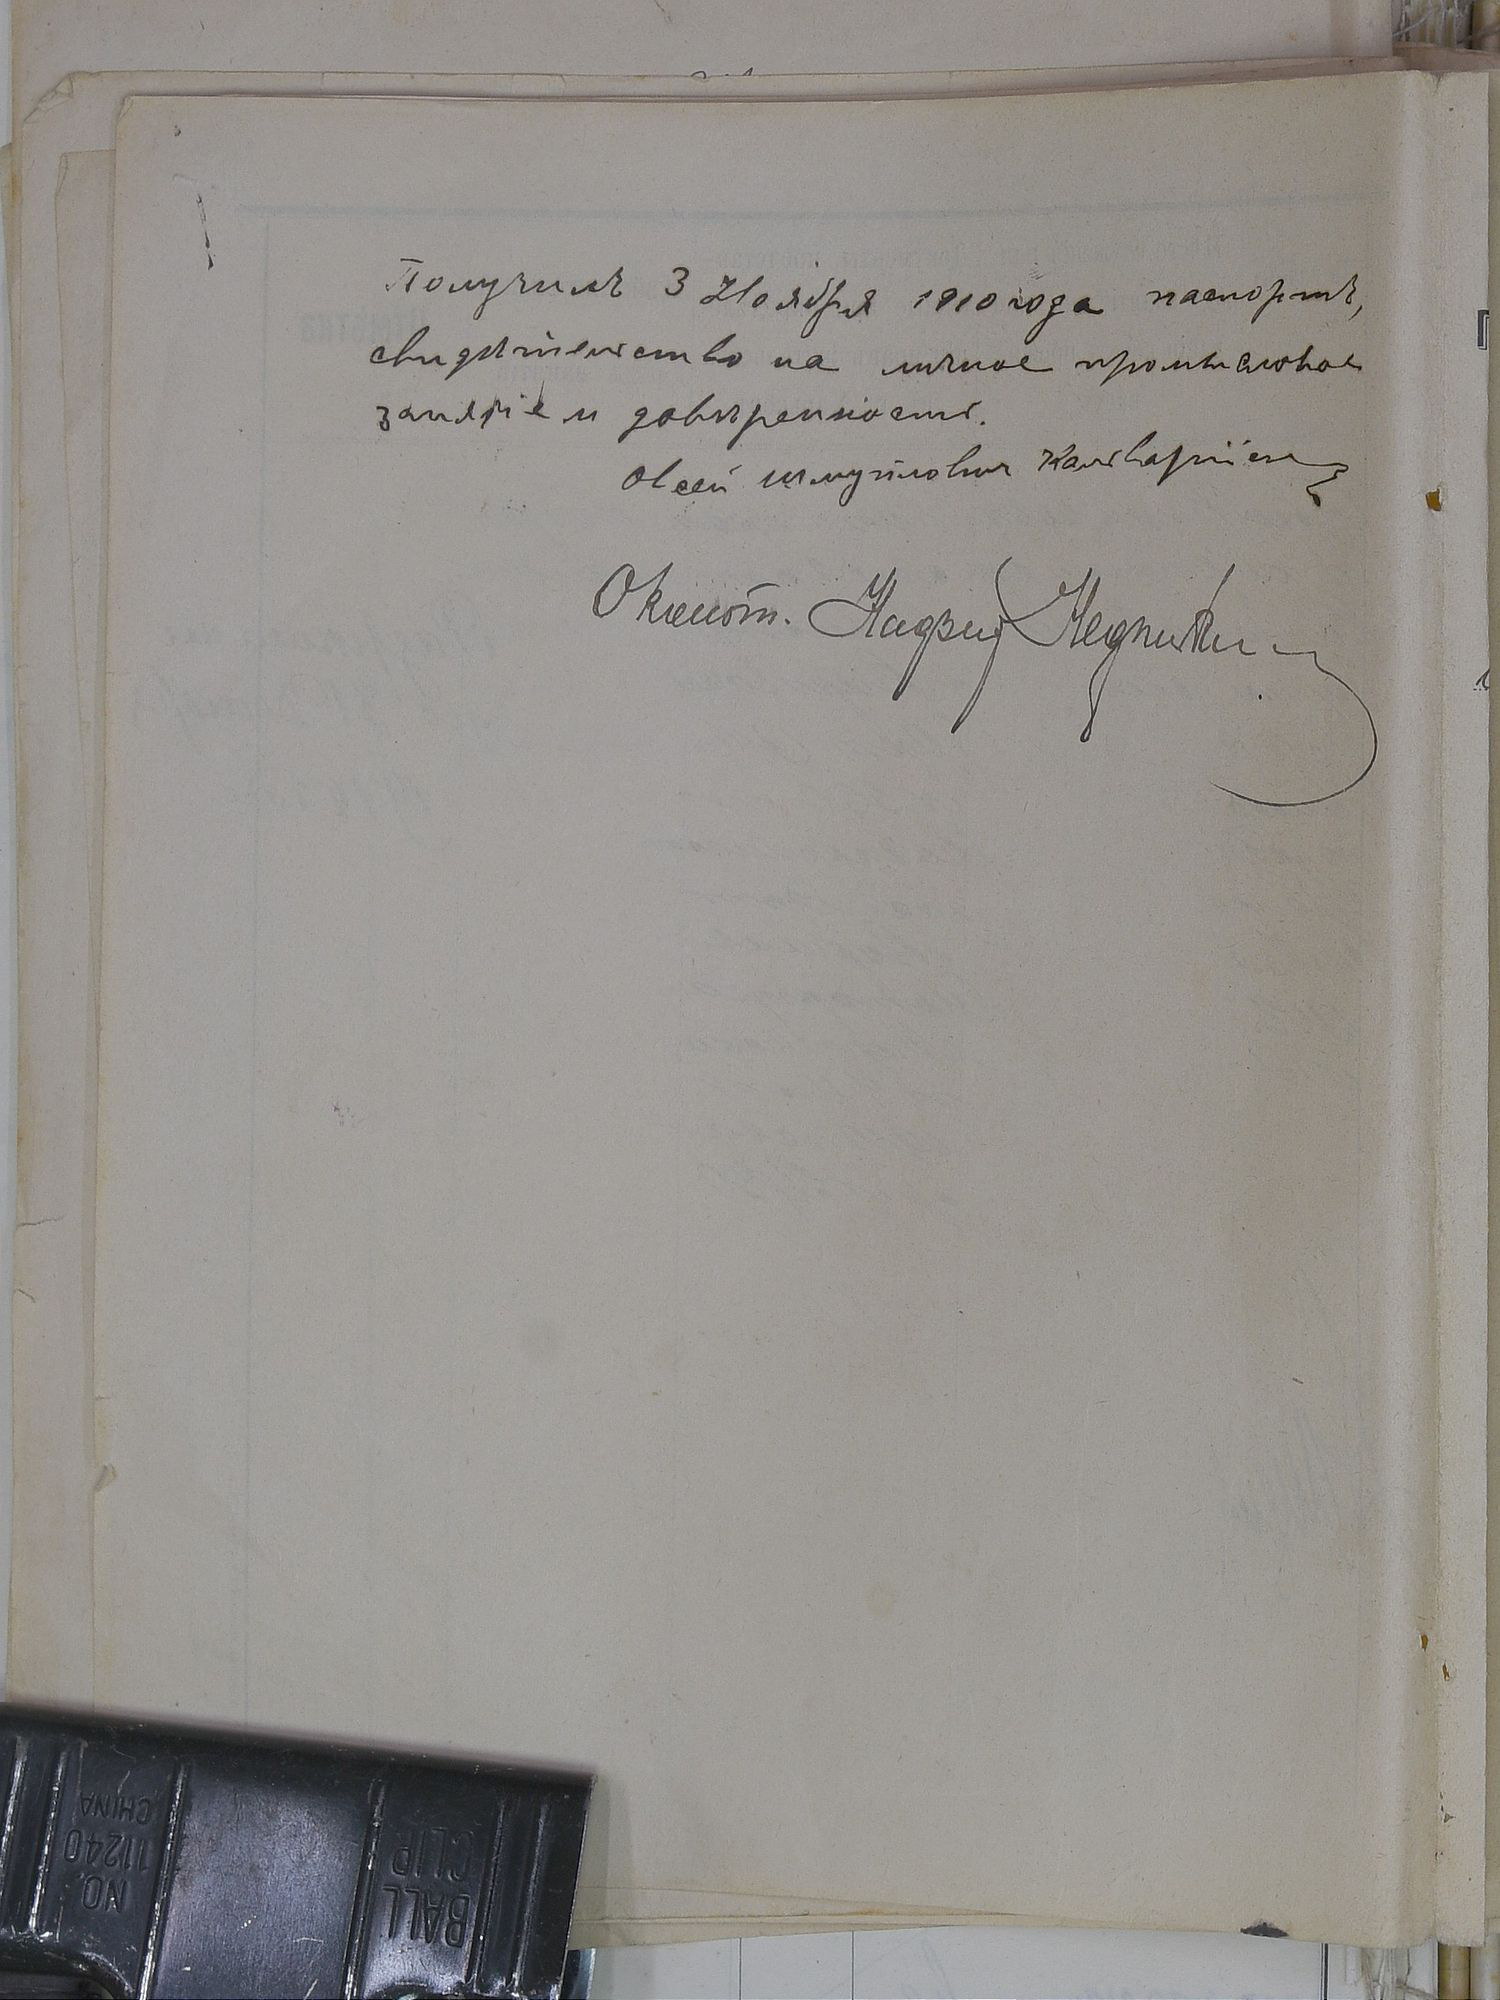 Получилъ 3 Ноября 1910 года паспортъ,
свидѣтельство на личное промысловое
занятіе и довѣренность.
Овсей Шмуйлович Кальварійск
Околот. Надзир.
BALL
CLIP
NO.
11240
CHINA